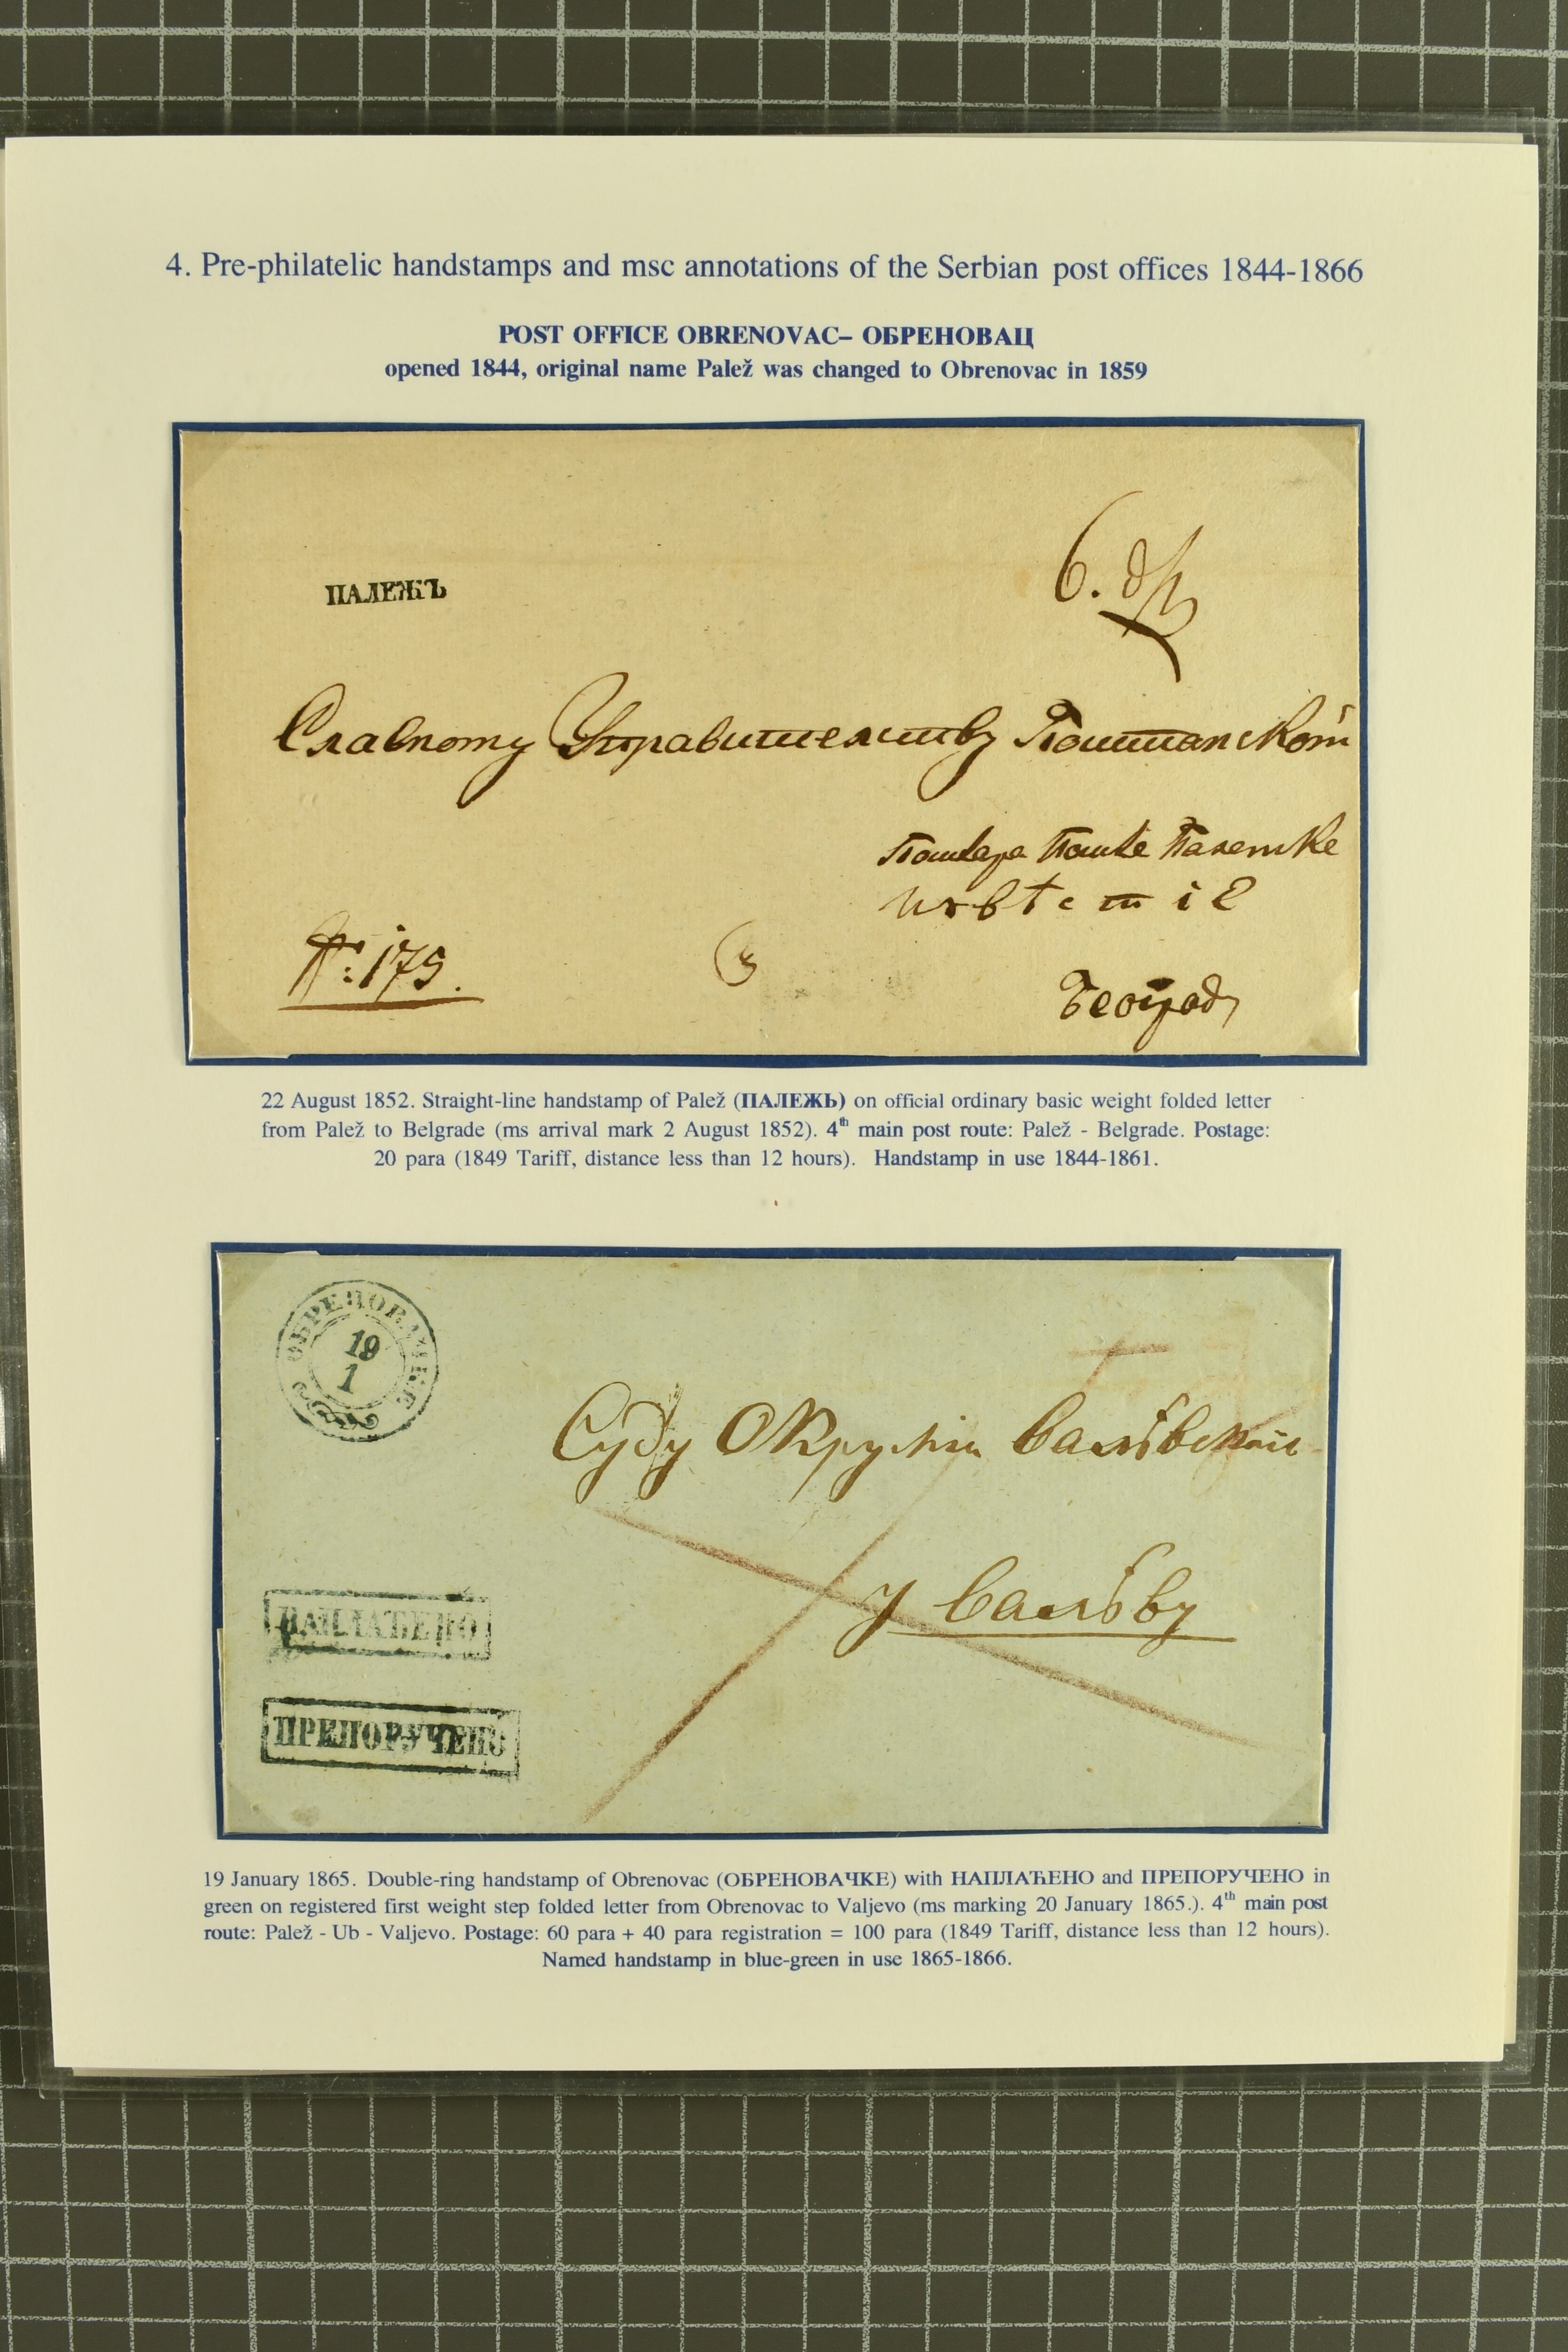 4. Pre-philatelic handstamps and msc annotations of the Serbian post offices 1844-1866
POST OFFICE OBRENOVAC– ОБРЕНОВАЦ
opened 1844, original name Palež was changed to Obrenovac in 1859
ПАЛЕЖЪ
6.
Славному Управителству Поштанском
Пошtара Поште Палешке
извѣстіе
№: 175.
Београд
22 August 1852. Straight-line handstamp of Palež (ПАЛЕЖЬ) on official ordinary basic weight folded letter
from Palež to Belgrade (ms arrival mark 2 August 1852). 4th main post route: Palež - Belgrade. Postage:
20 para (1849 Tariff, distance less than 12 hours). Handstamp in use 1844-1861.
ОБРЕНОВАЧКЕ
19
1
Суду Окружія
у Валѣву
НАПЛАЋЕНО
ПРЕПОРУЧЕНО
19 January 1865. Double-ring handstamp of Obrenovac (ОБРЕНОВАЧКЕ) with НАПЛАЋЕНО and ПРЕПОРУЧЕНО in
green on registered first weight step folded letter from Obrenovac to Valjevo (ms marking 20 January 1865.). 4th main post
route: Palež - Ub - Valjevo. Postage: 60 para + 40 para registration = 100 para (1849 Tariff, distance less than 12 hours).
Named handstamp in blue-green in use 1865-1866.